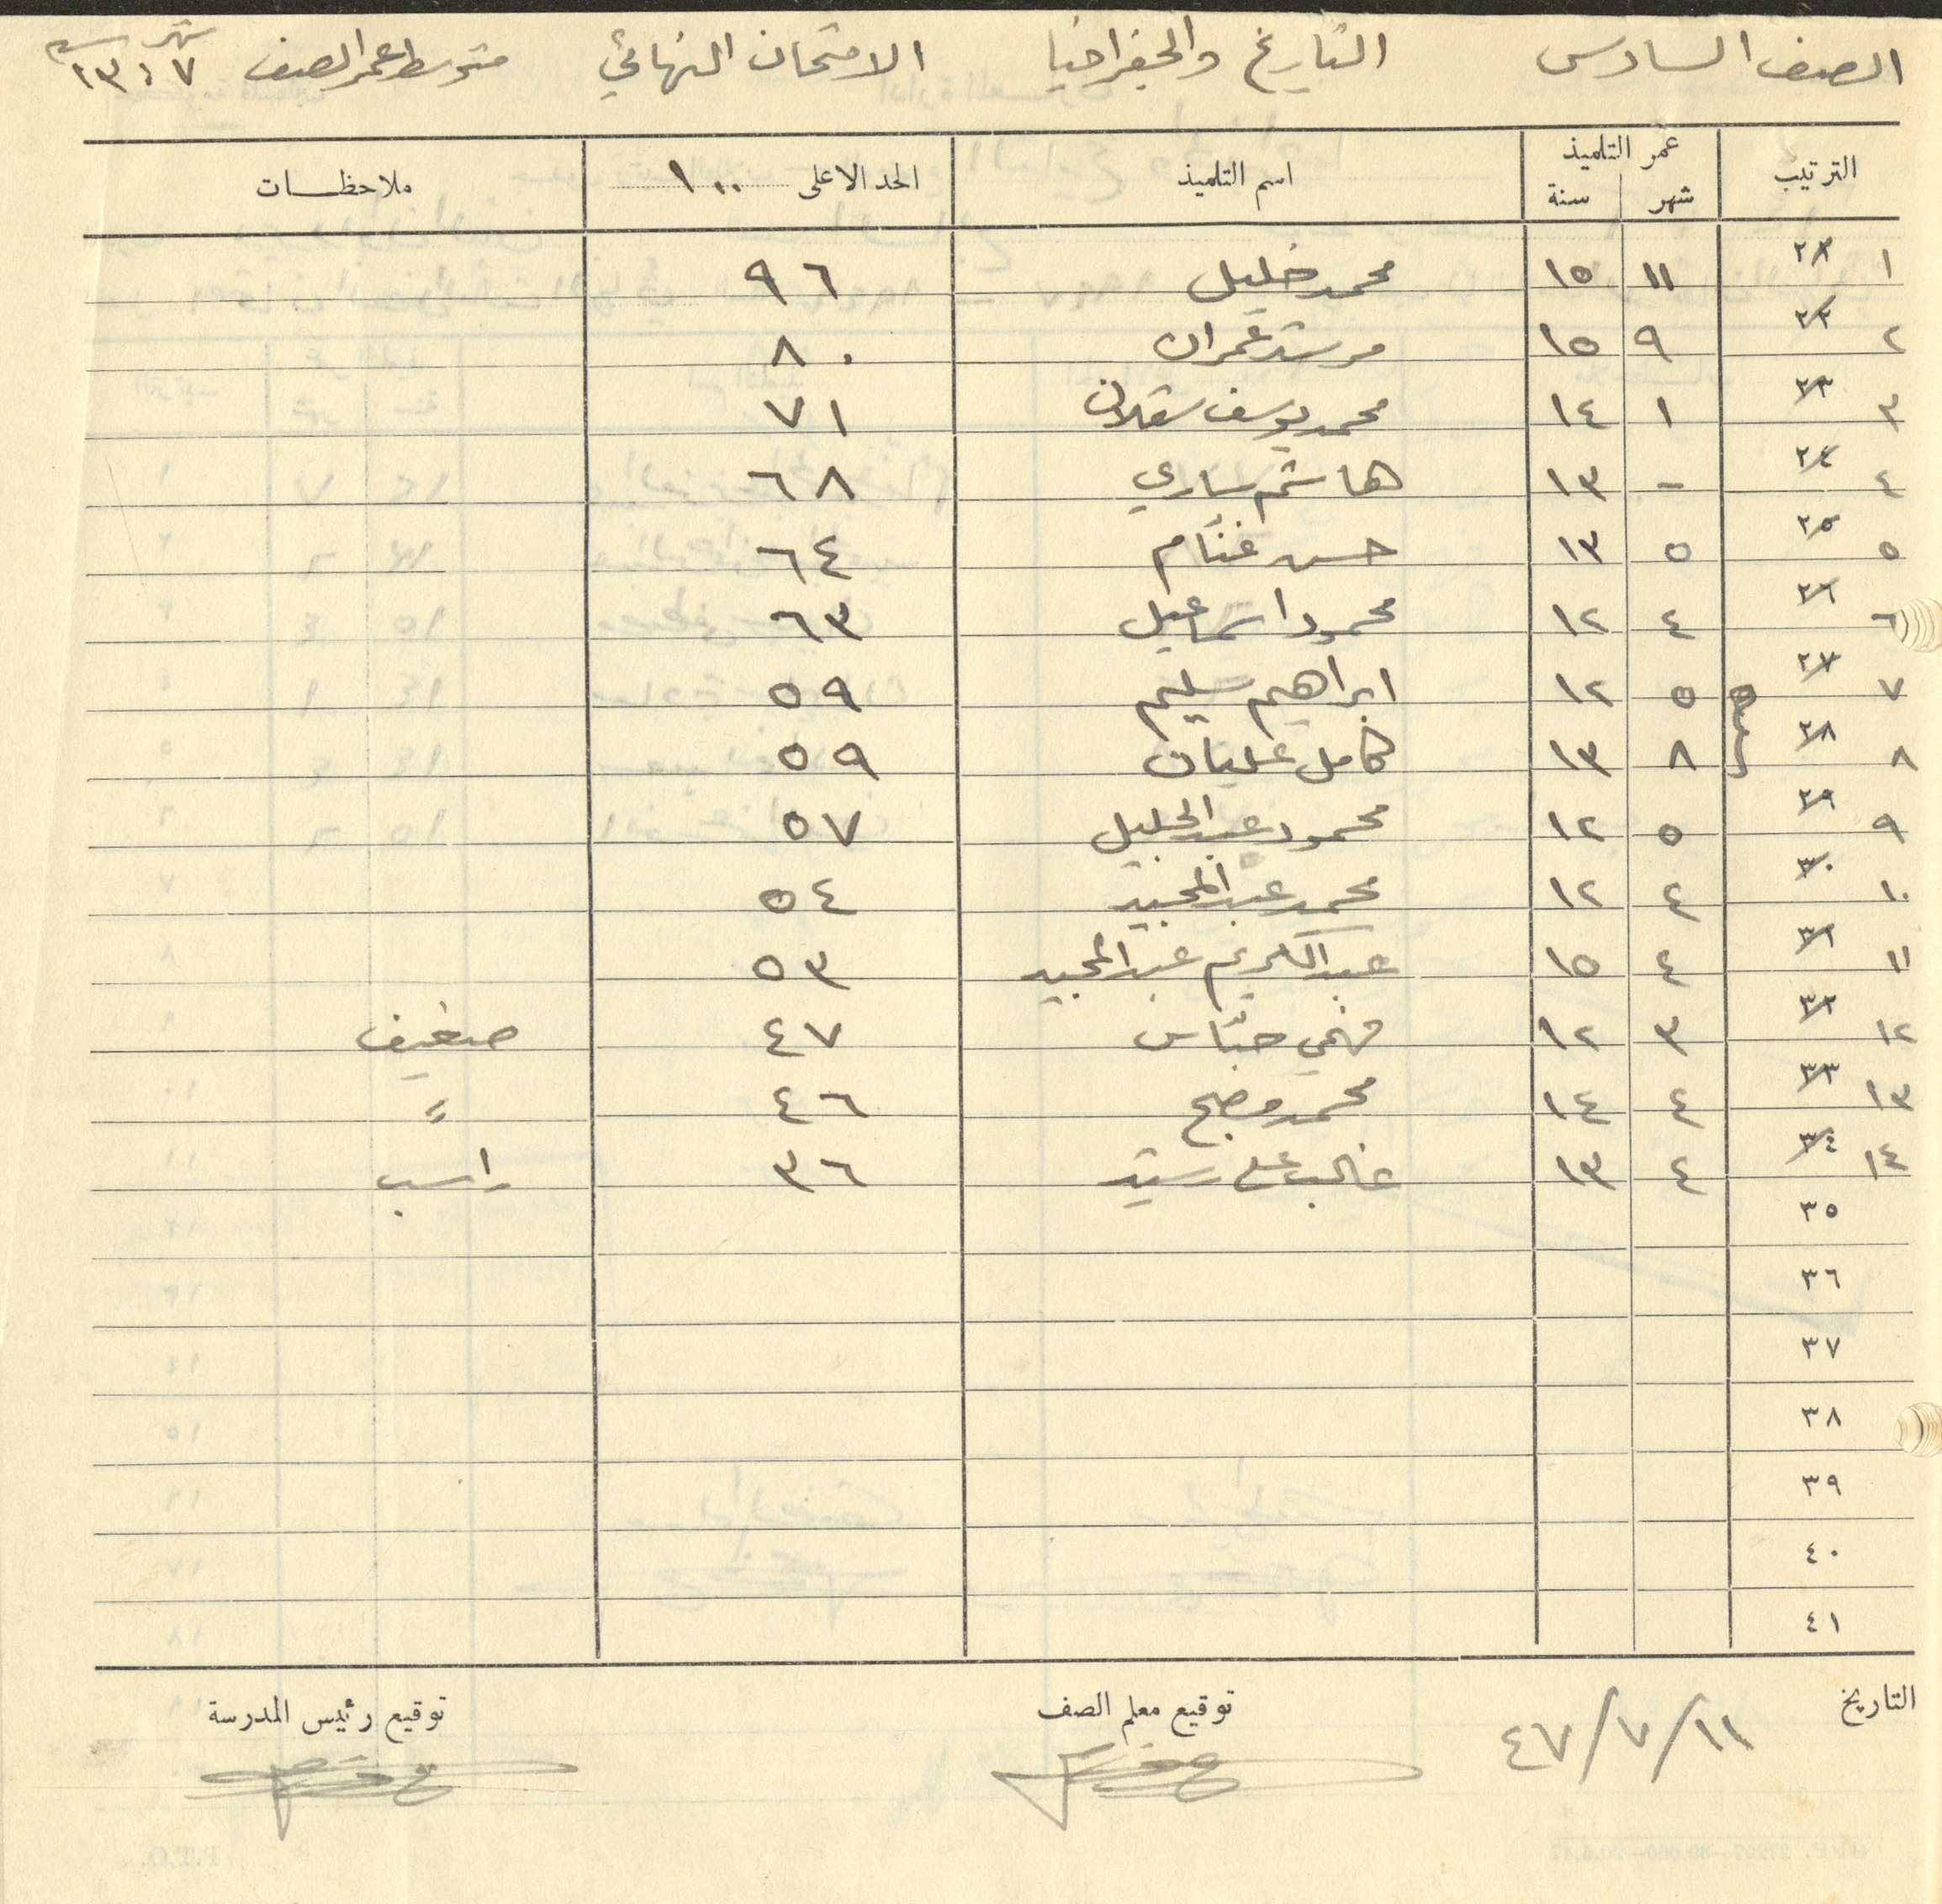 الصف السادس التاريخ والجغرافيا الامتحان النهائي متوسط عمر الصف شهر سنة ٧ ١٣
الترتيب عمر التلميذ اسم التلميذ الحد الاعلى ١٠٠ ملاحظات
شهر سنة
١ ٢٢ ١١ ١٥ محمد خليل ٩٦
٢ ٢٢ ٩ ١٥ مرشد عمران ٨٠
٣ ٢٣ ١ ١٤ محمد يوسف سقلان ٧١
٤ ٢٤ - ١٣ هاشم ساري ٦٨
٥ ٢٥ ٥ ١٣ حسن غنّام ٦٤
٦ ٢٦ ٤ ١٢ محمود اسماعيل ٦٣
٧ ٢٧ ٥ ١٢ ابراهيم سليم ٥٩
٨ ٢٨ ٨ ١٣ كامل عليان ٥٩
٩ ٢٩ ٥ ١٢ محمود عبد الجليل ٥٧
١٠ ٣٠ ٤ ١٢ محمد عبد المجيد ٥٤
١١ ٣١ ٤ ١٥ عبد الكريم عبد المجيد ٥٣
١٢ ٣٢ ٣ ١٢ فهمي حبّاس ٤٧ ضعيف
١٣ ٣٣ ٤ ١٤ محمد مصلح ٤٦ =
١٤ ٣٤ ٤ ١٣ غالب علي رشيد ٣٦ راسب
٣٥
٣٦
٣٧
٣٨
٣٩
٤٠
٤١
التاريخ ١١/٧/٤٧ توقيع معلم الصف توقيع رئيس المدرسة